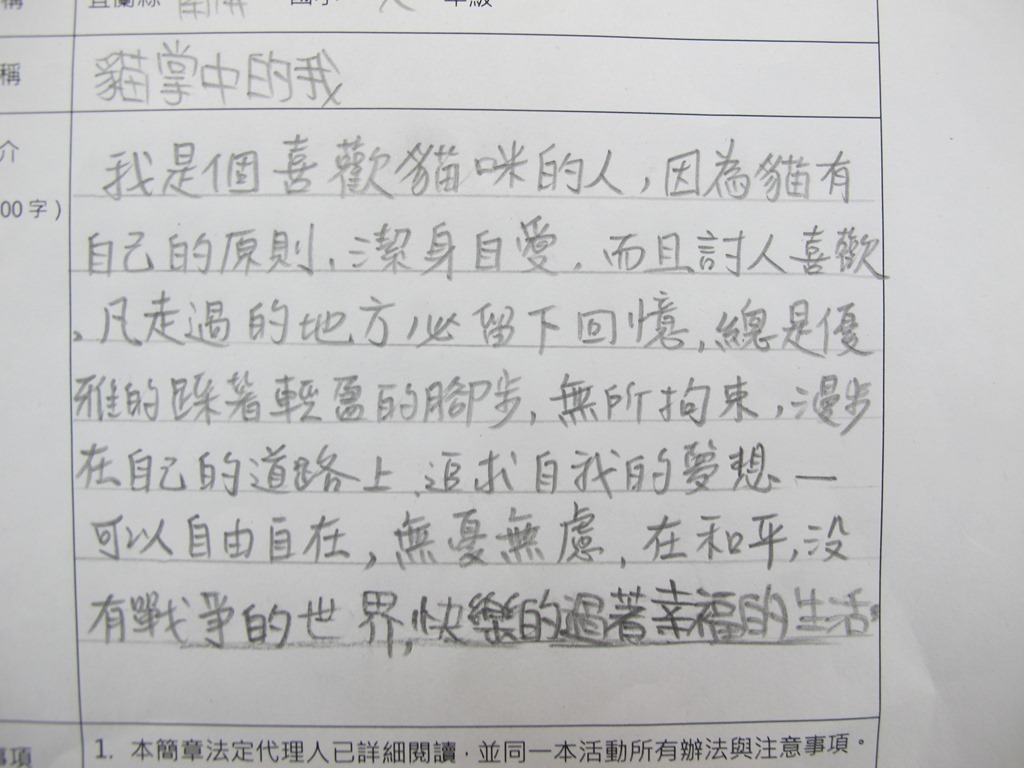 稱 宜蘭縣 國小 年級
稱 貓掌中的我
介 我是個喜歡貓咪的人，因為貓有
00字) 自己的原則，潔身自愛，而且討人喜歡
，凡走過的地方必留下回憶，總是優
雅的踩著輕盈的腳步，無所拘束，漫步
在自己的道路上，追求自我的夢想—
可以自由自在，無憂無慮，在和平，沒
有戰爭的世界，快樂的過著幸福的生活。
事項 1. 本簡章法定代理人已詳細閱讀，並同一本活動所有辦法與注意事項。